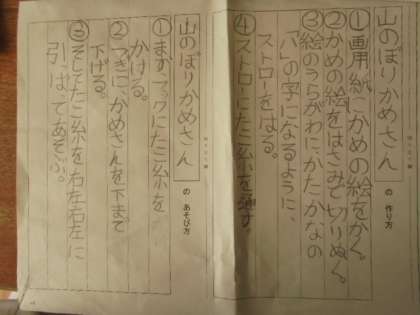 山のぼりかめさん の 作り方
①画用紙にかめの絵をかく。
②かめの絵をはさみで切りぬく。
③絵のうらがわに、かたかなの
「八」の字になるように、
ストローをはる。
④ストローにたこ糸を通す。
山のぼりかめさん の あそび方
①まずフックにたこ糸を
かける。
②つぎに、かめさんを下まで
下げる。
③そしてたこ糸を右左右左に
引っぱってあそぶ。